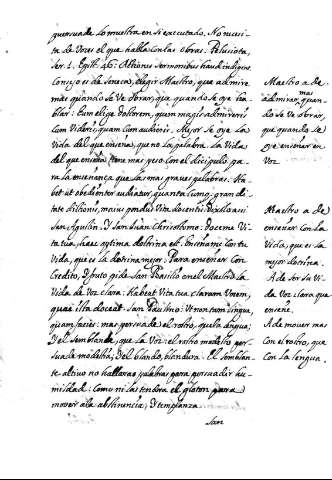 persuade lo muestra en si executado. No necesi-
ta de Vozes el que habla con las obras.
Ser. 1. Epist. 46:
Consejo es de Seneca, elegir Maestro, que admire
mas quando se Ve obrar, que quando se oye ha-
blar: Eum elige doctorem, quem magis admireris
cum Videris, quam cum audieris. Mejor se oye la
Vida del que enseña, que no la palabra. La Vida
del que enseña tiene mas peso con el dicipulo pa-
ra la enseñança que las mas graves palabras. Ha-
bet ut obedienter audiatur, quanta cumq. gran di-
tate dictionis, maius pondus Vita docentis: dixolo asi
San Agustin. Y San Juan Chrisostomo: doce me Vi-
ta tua, haec optima doctrina est. Enseñame con tu
Vida, que es la dotrina mejor. Para enseñar con
Credito, y fruto pide San Basilio en el Maestro la
Vida de Voz clara: Habeat Vita tua claram Vocem,
quae illa doceat. San Paulino: Ut non tam lingua,
quam facies: mas persuade el rostro, que la lengua;
Y el semblante, que la Voz: el rostro modesto per-
suade modestia; Y el blando, blandura. El semblan-
te altivo no hallara palabras para persuadir hu-
mildad: Como ni las tendra el gloton para
mover a la abstinencia, y templança.
San
Maestro a de
mas
admirar, quan-
do se Ve obrar,
que quando se
oye enseñar en
Voz
Maestro a de
enseñar con la
Vida, que es la
mejor dotrina.
A de ser su Vi-
da Voz clara que
enseñe.
A de mover mas
con el rostro, que
con la lengua.